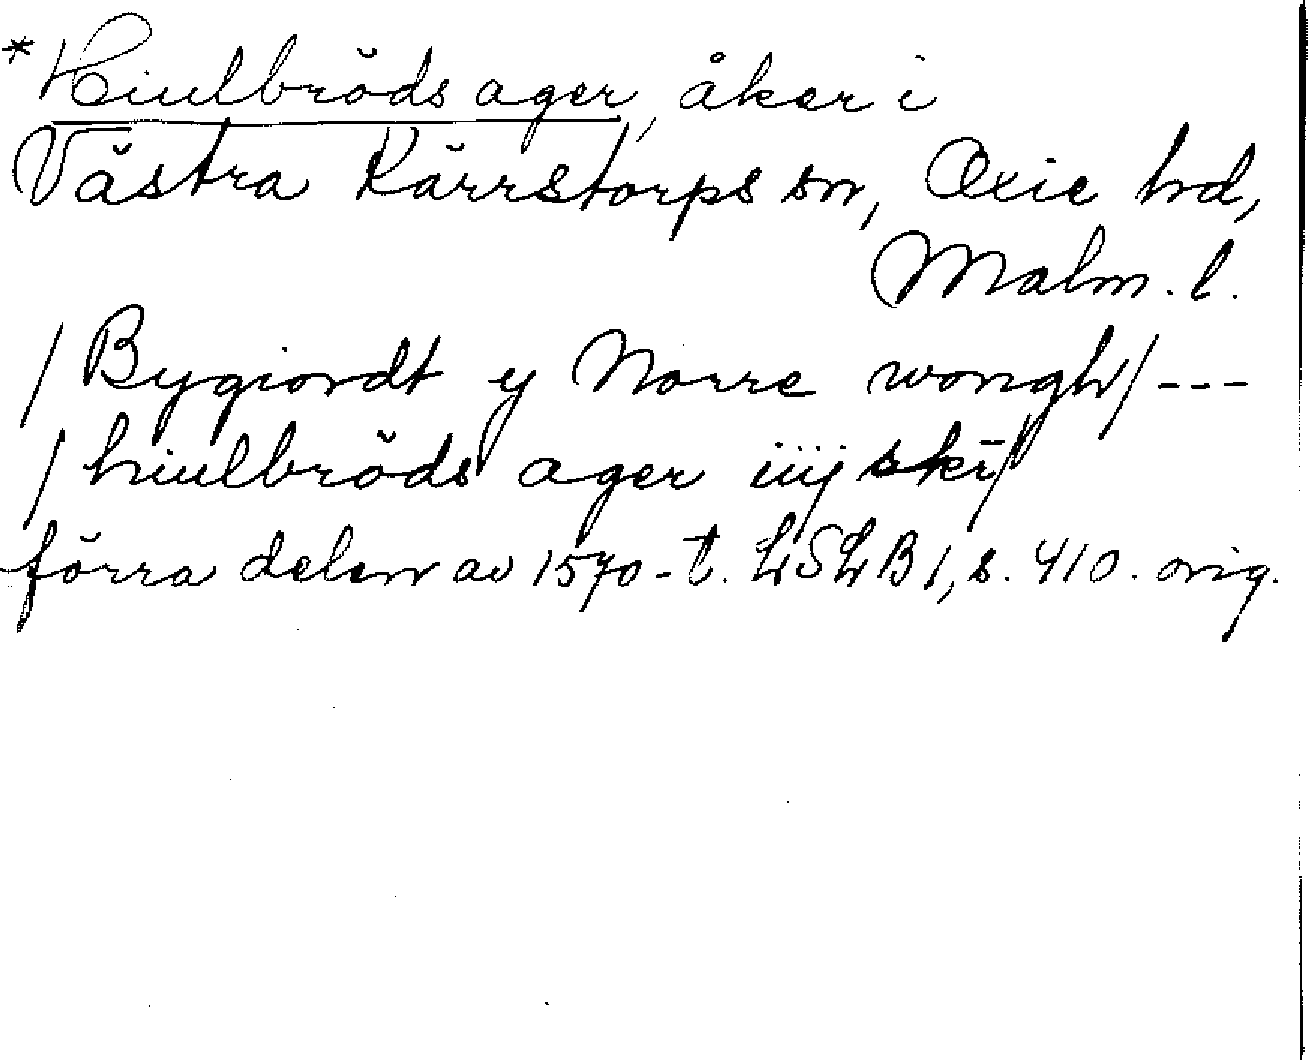 *Hiulbröds ager, åker i
Västra Kärrstorps sn, Oxie hd,
Malm. l.
/Bygiordt y Norre wongh/---
/hiulbröds ager iiij skī/
förra delen av 1570-t. LSLB 1, s. 410. orig.